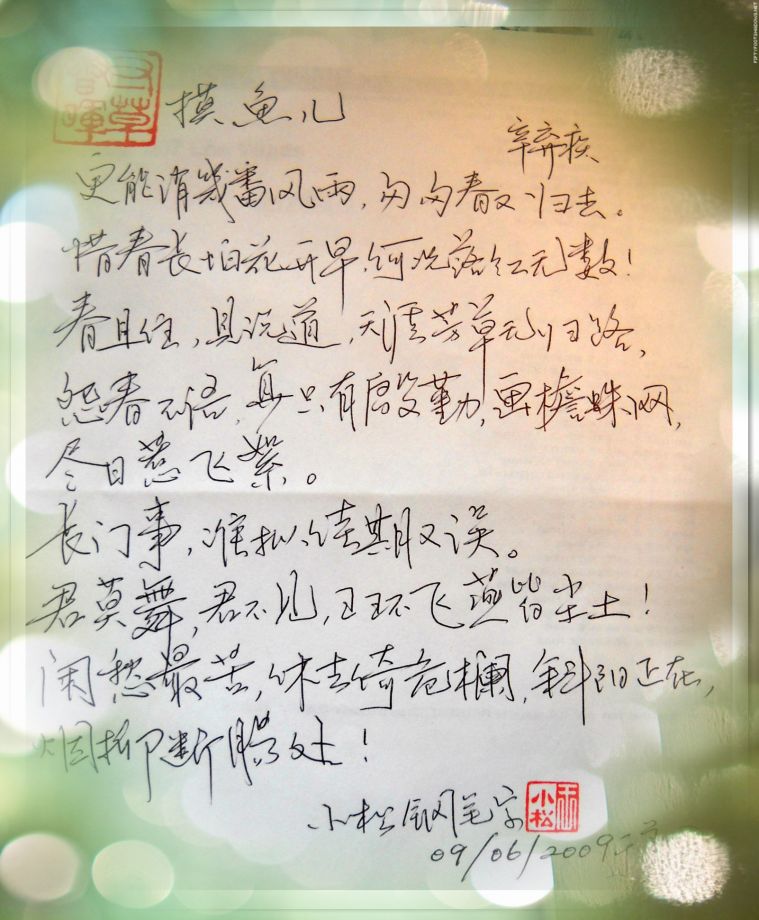 寸草春暉
摸鱼儿
辛弃疾
更能消幾番风雨，匆匆春又归去。
惜春长怕花开早，何况落红无数！
春且住，见说道，天涯芳草无归路，
怨春不语，算只有殷勤，画檐蛛网，
尽日惹飞絮。
长门事，准拟佳期又误。
君莫舞，君不见，玉环飞燕皆尘土！
闲愁最苦，休去倚危欄，斜阳正在，
烟柳断腸处！
小松钢笔字
小松
09/06/2009
FIFTYFOOTSHADOWS.NET